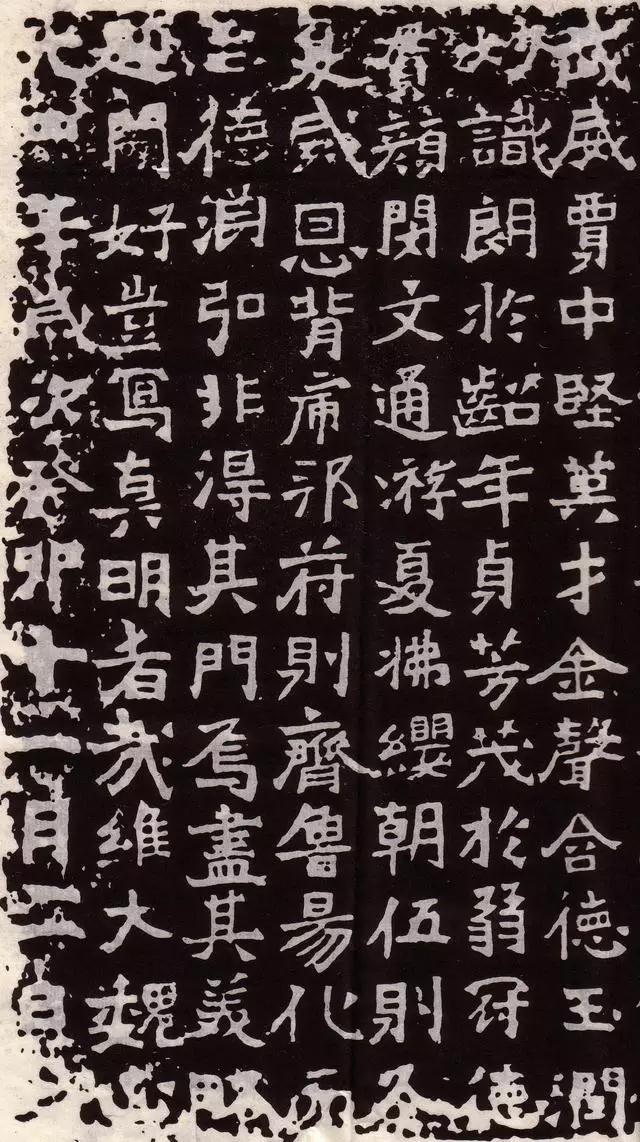 威賈中堅英才金聲合德玉潤
妙識朗於齠年貞芳茂於弱冠德
賁顏閔文通游夏拂纓朝伍則
恩背帝邪苻則齊魯易化
德淵弘非得其門焉盡其美略
闕好豈寫真明者哉維大魏
年歲次癸卯十二月二